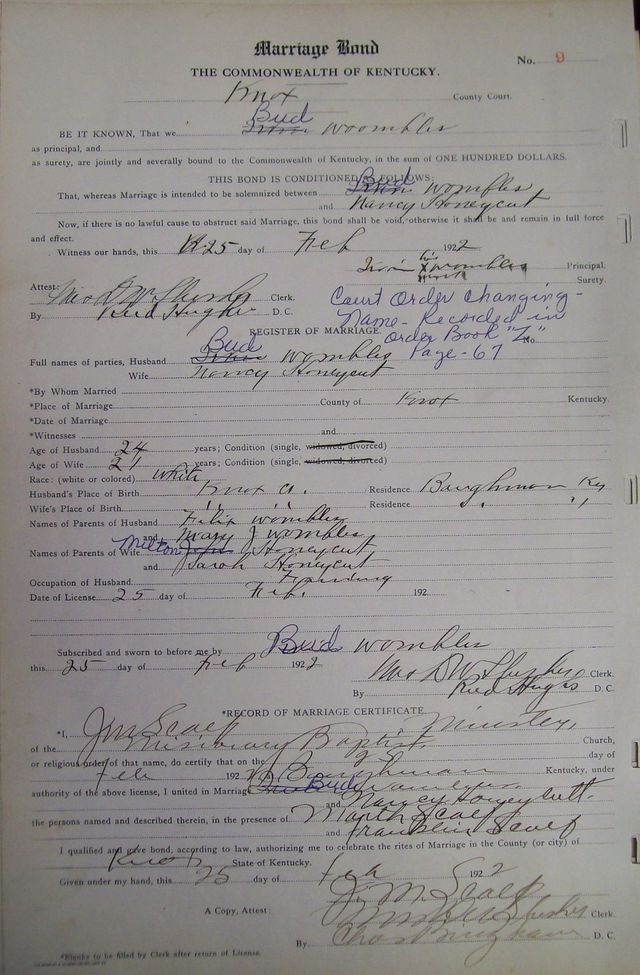 Marriage Bond
No. 9
THE COMMONWEALTH OF KENTUCKY.
Knox County Court.
Bud
BE IT KNOWN, That we woombles
as principal, and
as surety, are jointly and severally bound to the Commonwealth of Kentucky, in the sum of ONE HUNDRED DOLLARS.
THIS BOND IS CONDITIONED AS FOLLOWS:
Bud
That, whereas Marriage is intended to be solemnized between wombles
and Nancy Honeycut
Now, if there is no lawful cause to obstruct said Marriage, this bond shall be void, otherwise it shall be and remain in full force
and effect.
Witness our hands, this 25 day of Feb 1922
his
Irvin X wombles Principal.
mark
Surety.
Attest: Clerk.
By Reed Hughes D. C.
Court Order changing
Name - Recorded in
Order Book "Z"
Page - 67
REGISTER OF MARRIAGE. No
Bud
Full names of parties, Husband wombles
Wife Nancy Honeycut
*By Whom Married
*Place of Marriage County of Knox Kentucky.
*Date of Marriage
*Witnesses and
Age of Husband 24 years; Condition (single, widowed, divorced)
Age of Wife 21 years; Condition (single, widowed, divorced)
Race: (white or colored) white
Husband's Place of Birth Knox Co. Residence Baughman Ky
Wife's Place of Birth " Residence " "
Names of Parents of Husband Felix wombles
and Mary J wombles
Names of Parents of Wife Milton Honeycut
and Sarah Honeycut
Occupation of Husband Farming
Date of License 25 day of Feb. 192
Subscribed and sworn to before me by Bud wombles
this 25 day of Feb 1922
Clerk.
By Reed Hughes D. C.
*RECORD OF MARRIAGE CERTIFICATE.
*I, J M Scalf Minister,
of the Missionary Baptist Church,
or religious order of that name, do certify that on the day of
Feb 192 Baughman Kentucky, under
authority of the above license, I united in Marriage Bud
and Nancy Honeycutt
the persons named and described therein, in the presence of Martin Scalf
and Franklin Scalf
I qualified and gave bond, according to law, authorizing me to celebrate the rites of Marriage in the County (or city) of
Knox State of Kentucky.
Given under my hand, this 25 day of Feb 1922
J. M. Scalf
A Copy, Attest: Clerk.
By D. C.
*Blanks to be filled by Clerk after return of License.